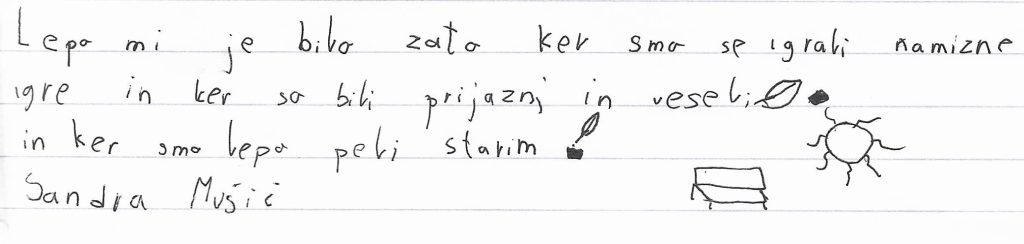 Lepo mi je bilo zato ker smo se igrali namizne
igre in ker so bili prijazni in veseli
in ker smo lepo peli starim
Sandra Mušić